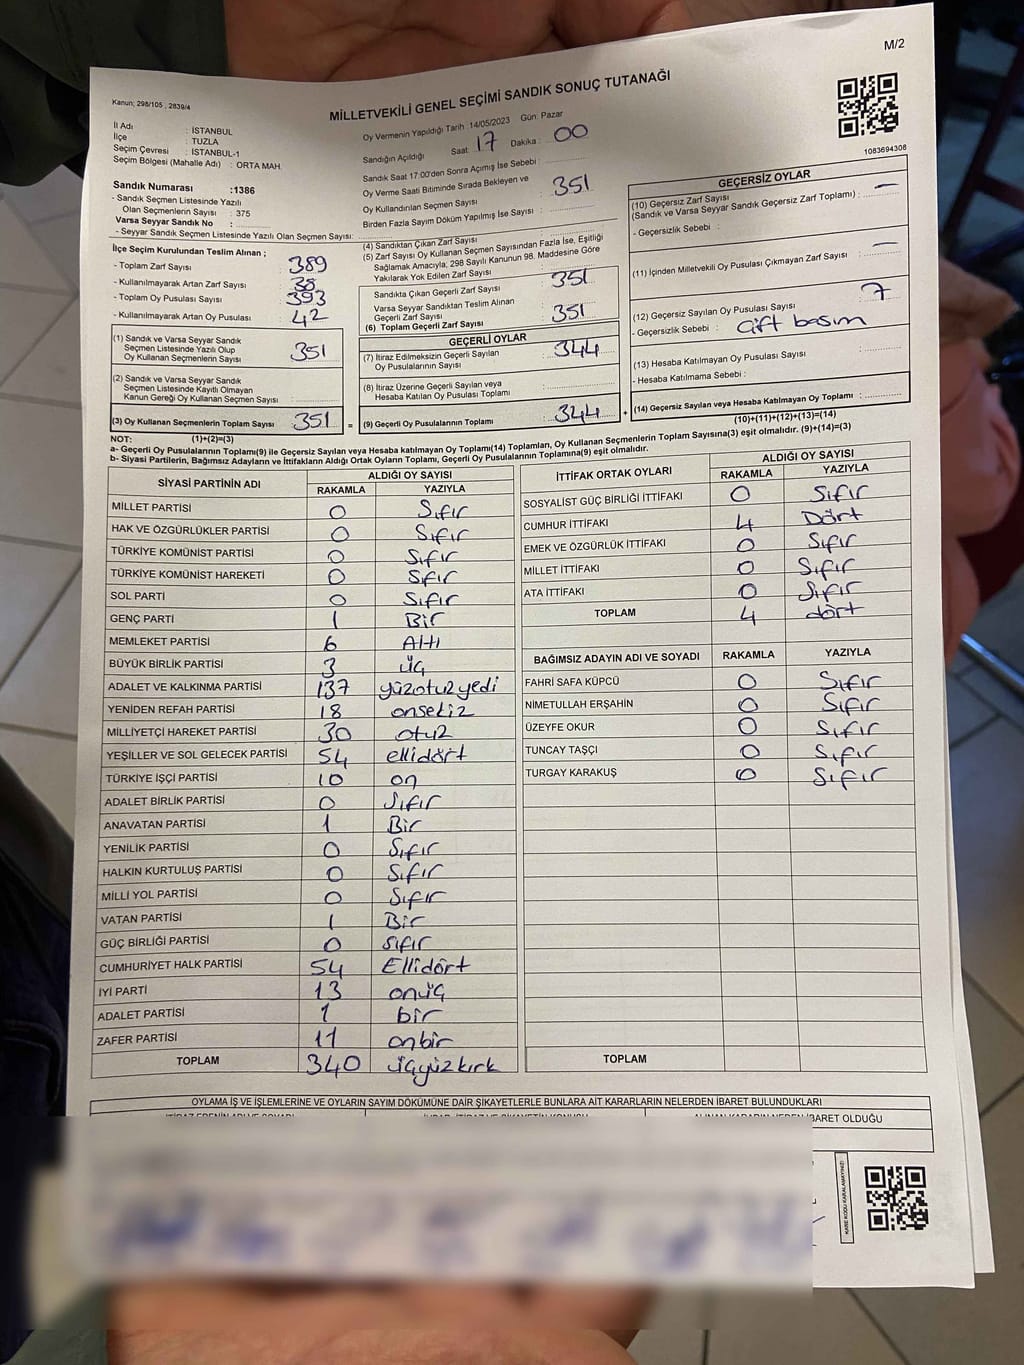 M/2
Kanun; 298/105 , 2839/4
MİLLETVEKİLİ GENEL SEÇİMİ SANDIK SONUÇ TUTANAĞI
1083694308
İl Adı : İSTANBUL
İlçe : TUZLA
Seçim Çevresi : İSTANBUL-1
Seçim Bölgesi (Mahalle Adı) : ORTA MAH.
Sandık Numarası :1386
- Sandık Seçmen Listesinde Yazılı
Olan Seçmenlerin Sayısı : 375
Varsa Seyyar Sandık No :
- Seyyar Sandık Seçmen Listesinde Yazılı Olan Seçmen Sayısı:
Oy Vermenin Yapıldığı Tarih :14/05/2023 Gün: Pazar
Sandığın Açıldığı Saat: 17 Dakika : 00
Sandık Saat 17:00'den Sonra Açılmış İse Sebebi :
Oy Verme Saati Bitiminde Sırada Bekleyen ve
Oy Kullandırılan Seçmen Sayısı : 351
Birden Fazla Sayım Döküm Yapılmış İse Sayısı :
İlçe Seçim Kurulundan Teslim Alınan ;
- Toplam Zarf Sayısı : 389
- Kullanılmayarak Artan Zarf Sayısı : 38
- Toplam Oy Pusulası Sayısı : 393
- Kullanılmayarak Artan Oy Pusulası : 42
(1) Sandık ve Varsa Seyyar Sandık
Seçmen Listesinde Yazılı Olup
Oy Kullanan Seçmenlerin Sayısı : 351
(2) Sandık ve Varsa Seyyar Sandık
Seçmen Listesinde Kayıtlı Olmayan
Kanun Gereği Oy Kullanan Seçmen Sayısı :
(3) Oy Kullanan Seçmenlerin Toplam Sayısı : 351 =
(1)+(2)=(3)
(4) Sandıktan Çıkan Zarf Sayısı :
(5) Zarf Sayısı Oy Kullanan Seçmen Sayısından Fazla İse, Eşitliği
Sağlamak Amacıyla; 298 Sayılı Kanunun 98. Maddesine Göre
Yakılarak Yok Edilen Zarf Sayısı :
Sandıkta Çıkan Geçerli Zarf Sayısı : 351
Varsa Seyyar Sandıktan Teslim Alınan
Geçerli Zarf Sayısı :
(6) Toplam Geçerli Zarf Sayısı : 351
GEÇERLİ OYLAR
(7) İtiraz Edilmeksizin Geçerli Sayılan
Oy Pusulalarının Sayısı : 344
(8) İtiraz Üzerine Geçerli Sayılan veya
Hesaba Katılan Oy Pusulası Toplamı :
(9) Geçerli Oy Pusulalarının Toplamı : 344 +
GEÇERSİZ OYLAR
(10) Geçersiz Zarf Sayısı
(Sandık ve Varsa Seyyar Sandık Geçersiz Zarf Toplamı) : —
- Geçersizlik Sebebi :
(11) İçinden Milletvekili Oy Pusulası Çıkmayan Zarf Sayısı : —
(12) Geçersiz Sayılan Oy Pusulası Sayısı : 7
- Geçersizlik Sebebi : Çift basım
(13) Hesaba Katılmayan Oy Pusulası Sayısı :
- Hesaba Katılmama Sebebi :
(14) Geçersiz Sayılan veya Hesaba Katılmayan Oy Toplamı :
(10)+(11)+(12)+(13)=(14)
NOT:
a- Geçerli Oy Pusulalarının Toplamı(9) ile Geçersiz Sayılan veya Hesaba katılmayan Oy Toplamı(14) Toplamları, Oy Kullanan Seçmenlerin Toplam Sayısına(3) eşit olmalıdır. (9)+(14)=(3)
b- Siyasi Partilerin, Bağımsız Adayların ve İttifakların Aldığı Ortak Oyların Toplamı, Geçerli Oy Pusulalarının Toplamına(9) eşit olmalıdır.
SİYASİ PARTİNİN ADI ALDIĞI OY SAYISI
RAKAMLA YAZIYLA
MİLLET PARTİSİ 0 Sıfır
HAK VE ÖZGÜRLÜKLER PARTİSİ 0 Sıfır
TÜRKİYE KOMÜNİST PARTİSİ 0 Sıfır
TÜRKİYE KOMÜNİST HAREKETİ 0 Sıfır
SOL PARTİ 0 Sıfır
GENÇ PARTİ 1 Bir
MEMLEKET PARTİSİ 6 Altı
BÜYÜK BİRLİK PARTİSİ 3 üç
ADALET VE KALKINMA PARTİSİ 137 yüzotuzyedi
YENİDEN REFAH PARTİSİ 18 onsekiz
MİLLİYETÇİ HAREKET PARTİSİ 30 otuz
YEŞİLLER VE SOL GELECEK PARTİSİ 54 ellidört
TÜRKİYE İŞÇİ PARTİSİ 10 on
ADALET BİRLİK PARTİSİ 0 Sıfır
ANAVATAN PARTİSİ 1 Bir
YENİLİK PARTİSİ 0 Sıfır
HALKIN KURTULUŞ PARTİSİ 0 Sıfır
MİLLİ YOL PARTİSİ 0 Sıfır
VATAN PARTİSİ 1 Bir
GÜÇ BİRLİĞİ PARTİSİ 0 sıfır
CUMHURİYET HALK PARTİSİ 54 Ellidört
İYİ PARTİ 13 onüç
ADALET PARTİSİ 1 bir
ZAFER PARTİSİ 11 onbir
TOPLAM 340 üçyüzkırk
İTTİFAK ORTAK OYLARI ALDIĞI OY SAYISI
RAKAMLA YAZIYLA
SOSYALİST GÜÇ BİRLİĞİ İTTİFAKI 0 Sıfır
CUMHUR İTTİFAKI 4 Dört
EMEK VE ÖZGÜRLÜK İTTİFAKI 0 Sıfır
MİLLET İTTİFAKI 0 Sıfır
ATA İTTİFAKI 0 Sıfır
TOPLAM 4 dört
BAĞIMSIZ ADAYIN ADI VE SOYADI RAKAMLA YAZIYLA
FAHRİ SAFA KÜPCÜ 0 Sıfır
NİMETULLAH ERŞAHİN 0 Sıfır
ÜZEYFE OKUR 0 Sıfır
TUNCAY TAŞÇI 0 Sıfır
TURGAY KARAKUŞ 0 Sıfır
TOPLAM
OYLAMA İŞ VE İŞLEMLERİNE VE OYLARIN SAYIM DÖKÜMÜNE DAİR ŞİKAYETLERLE BUNLARA AİT KARARLARIN NELERDEN İBARET BULUNDUKLARI
İBARET OLDUĞU
KARE KODU KARALAMAYINIZ!